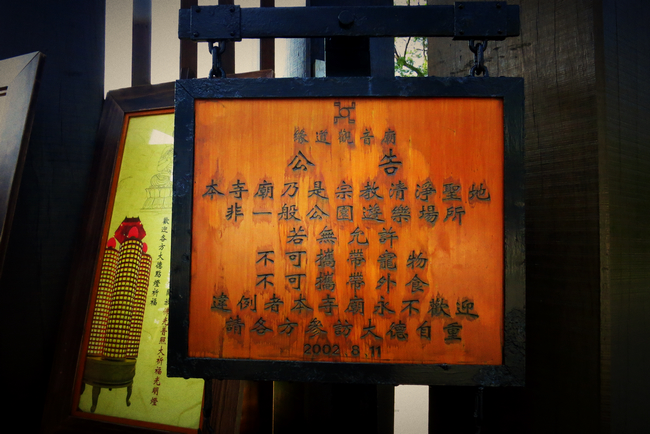 緣道觀音廟
公告
本寺廟乃是宗教清淨聖地
非一般公園遊樂場所
若無允許
不可攜帶寵物
不可攜帶外食
違例者本寺廟永不歡迎
請各方參訪大德自重
2002.8.11
歡迎各方大德點燈祈福
光普照大祈福光明燈